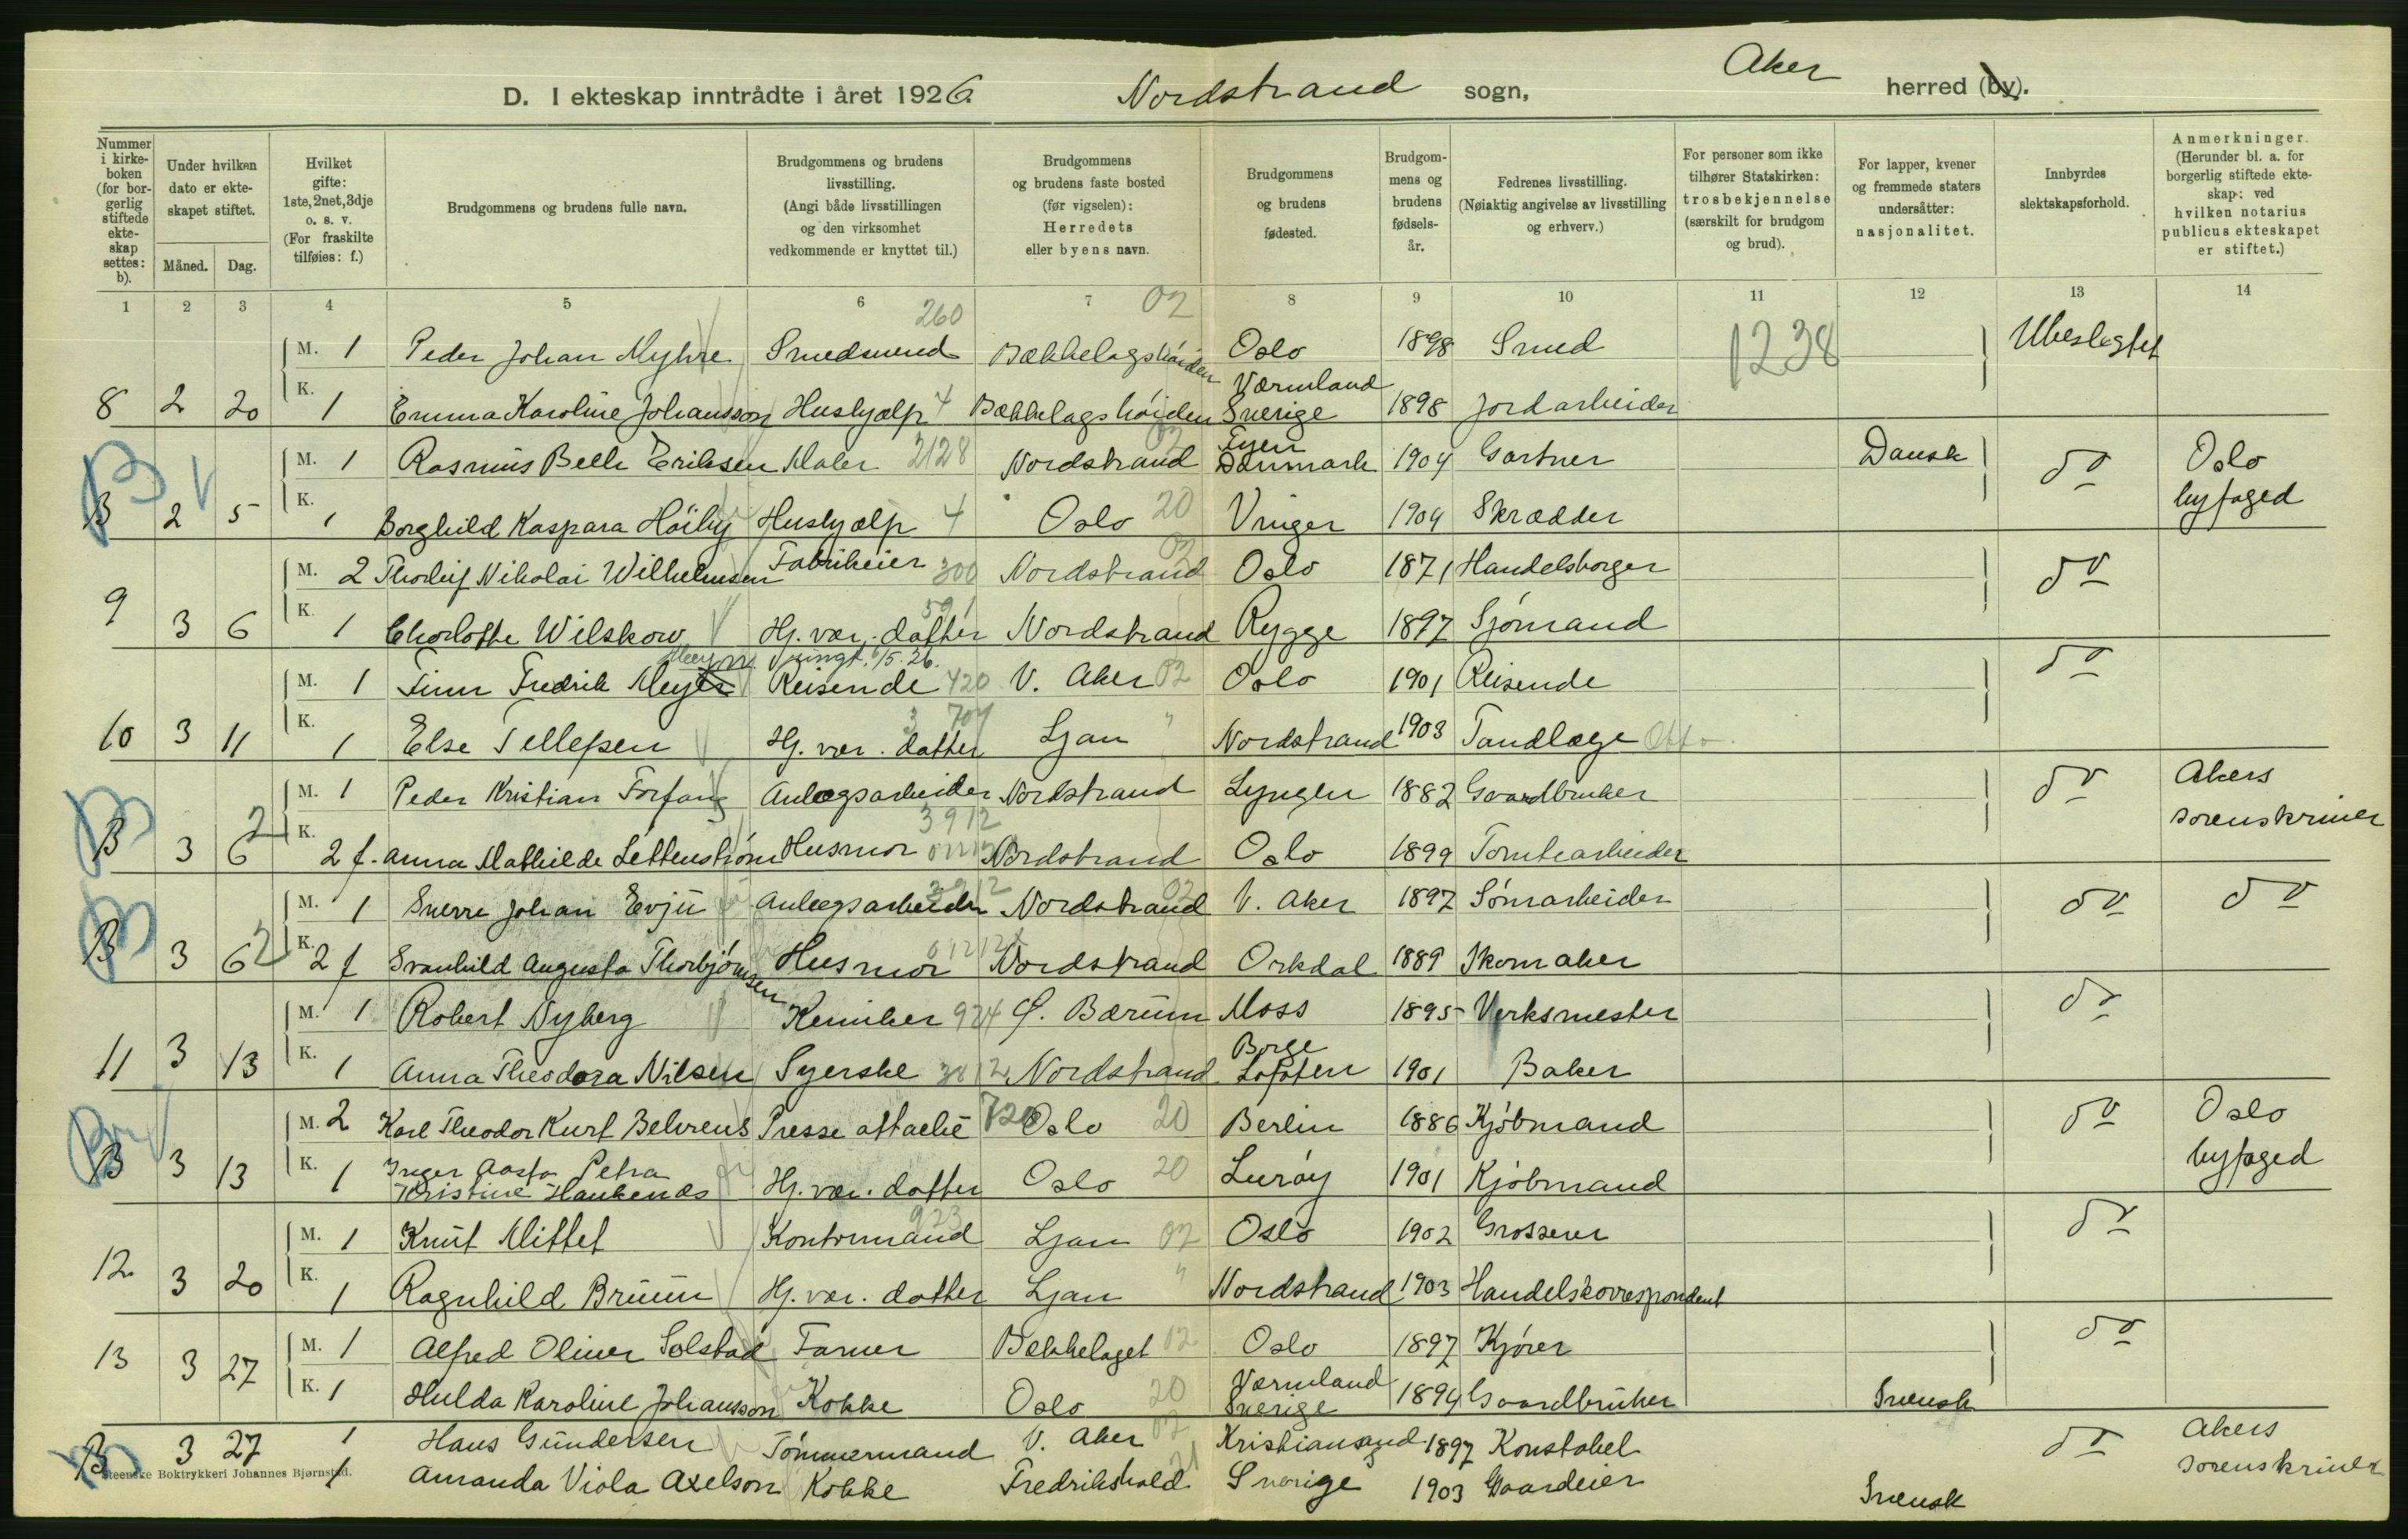 D. I ekteskap inntrådte i året 1926. Nordstrand sogn, Aker herred (by).
Nummer i kirkeboken (for borgerlig stiftede ekteskap settes: b).
Under hvilken dato er ekteskapet stiftet.
Måned. Dag.
Hvilket gifte: 1ste, 2net, 3dje o. s. v. (For fraskilte tilføies: f.)
Brudgommens og brudens fulle navn.
Brudgommens og brudens livsstilling. (Angi både livsstillingen og den virksomhet vedkommende er knyttet til.)
Brudgommens og brudens faste bosted (før vigselen): Herredets eller byens navn.
Brudgommens og brudens fødested.
Brudgommens og brudens fødselsår.
Fedrenes livsstilling. (Nøiaktig angivelse av livsstilling og erhverv.)
For personer som ikke tilhører Statskirken: trosbekjennelse (særskilt for brudgom og brud).
For lapper, kvener og fremmede staters undersåtter: nasjonalitet.
Innbyrdes slektskapsforhold.
Anmerkninger. (Herunder bl. a. for borgerlig stiftede ekteskap: ved hvilken notarius publicus ekteskapet er stiftet.)
1 2 3 4 5 6 7 8 9 10 11 12 13 14
260 02
M. 1 Peder Johan Myhre Smedsvend Bækkelagshøiden Oslo 1898 Smed 1238 Ubeslegtet
8 2 20 K. 1 Emma Karoline Johansson Hushjælp 4 Bækkelagshøiden Værmland Sverige 1898 Jordarbeider
M. 1 Rasmus Bech Eriksen Maler 2128 Nordstrand 02 Fyen Danmark 1904 Gartner Dansk do Oslo byfoged
B 2 5 K. 1 Borghild Kaspara Høiby Hushjælp 4 Oslo 20 Vinger 1904 Skrædder
M. 2 Thorleif Nikolai Wilhelmsen Fabrikeier 300 Nordstrand 02 Oslo 1871 Handelsborger do
9 3 6 K. 1 Charlotte Wilskow Hj. vær. datter 591 Nordstrand Rygge 1897 Sjømand
M. 1 Finn Fredrik Meyer Reisende 420 V. Aker 02 Oslo 1901 Reisende do
10 3 11 K. 1 Else Tellefsen Hj. vær. datter 3 704 Ljan " Nordstrand 1903 Tandlæge
M. 1 Peder Kristian Forfang Anlægsarbeider Nordstrand Lyngen 1882 Gaardbruker do Akers sorenskriver
B 3 6 2 K. 2 f. Anna Mathilde Lettenstrøm Husmor 3912 Nordstrand Oslo 1899 Tomtearbeider
M. 1 Sverre Johan Evju Anlægsarbeider 3912 Nordstrand 02 V. Aker 1897 Sømarbeider do do
B 3 6 2 K. 2 f Svanhild Augusta Thorbjørnsen Husmor Nordstrand Orkdal 1889 Skomaker
M. 1 Robert Nyberg Kemiker 924 Ø. Bærum Moss 1895 Verksmester do
11 3 13 K. 1 Anna Theodora Nilsen Syerske 3812 Nordstrand Borge Lofoten 1901 Baker
M. 2 Karl Theodor Kurt Behrens Presse attaché 720 Oslo 20 Berlin 1886 Kjøbmand do Oslo byfoged
B 3 13 K. 1 Inger Aasta Petra Kristine Haukenæs Hj. vær. datter Oslo 20 Lurøy 1901 Kjøbmand
M. 1 Knut Mittet Kontormand 923 Ljan 02 Oslo 1902 Grosserer do
12 3 20 K. 1 Ragnhild Bruun Hj. vær. datter Ljan " Nordstrand 1903 Handelskorrespondent
M. 1 Alfred Oliver Solstad Farver Bækkelaget 02 Oslo 1897 Kjører do
13 3 27 K. 1 Hulda Karoline Johansson Kokke Oslo 20 Værmland Sverige 1894 Gaardbruker Svensk
B 3 27 1 Hans Gundersen Tømmermand V. Aker 02 Kristiansand 1897 Konstabel do Akers sorenskriver
1 Amanda Viola Axelson Kokke Fredrikshald 21 Sverige 1903 Gaardeier Svensk
Steenske Boktrykkeri Johannes Bjørnstad.